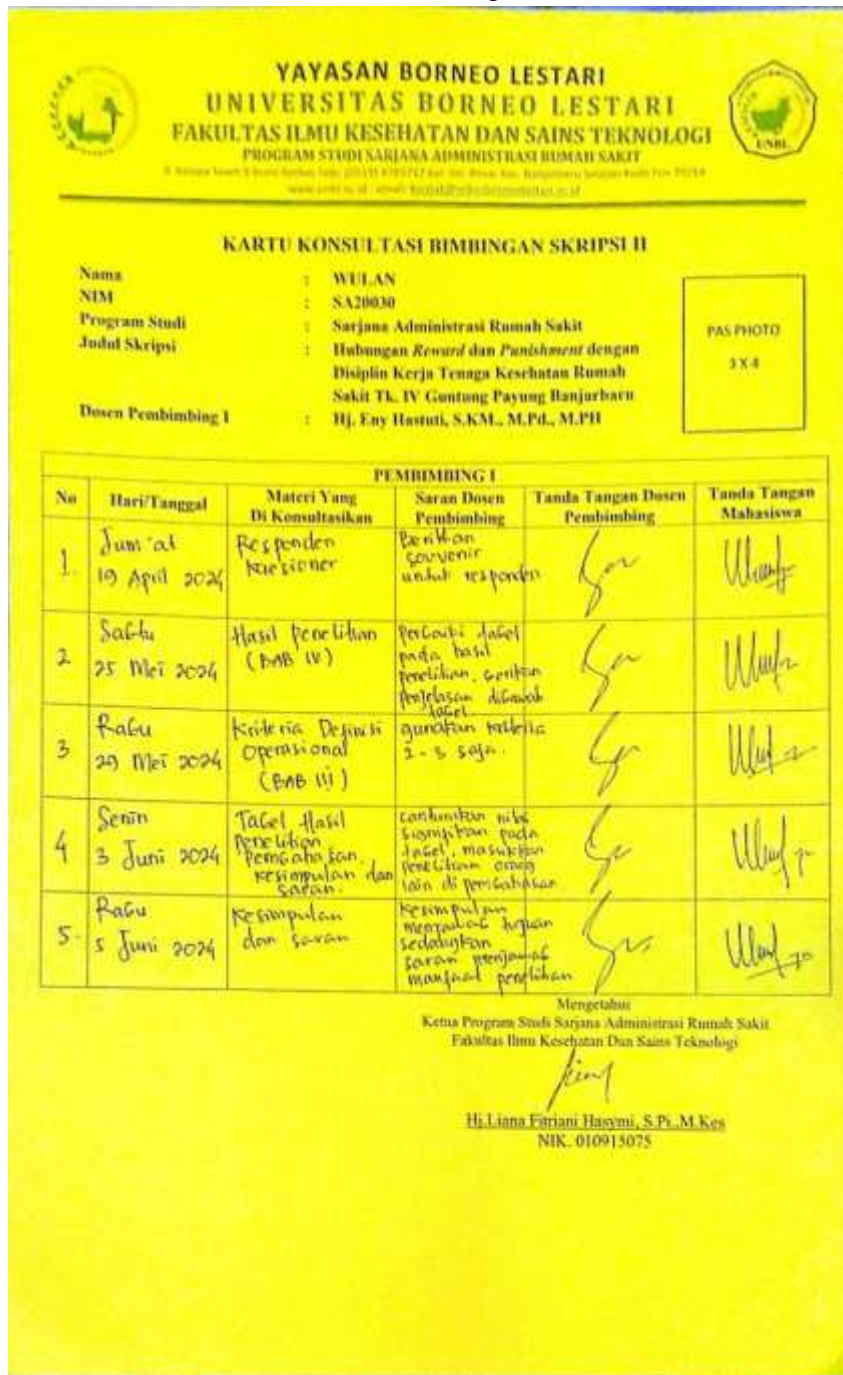 YAYASAN BORNEO LESTARI
UNIVERSITAS BORNEO LESTARI
FAKULTAS ILMU KESEHATAN DAN SAINS TEKNOLOGI
PROGRAM STUDI SARJANA ADMINISTRASI RUMAH SAKIT
UNBL
KARTU KONSULTASI BIMBINGAN SKRIPSI II
Nama : WULAN
NIM : SA20030
Program Studi : Sarjana Administrasi Rumah Sakit
Judul Skripsi : Hubungan Reward dan Punishment dengan
Disiplin Kerja Tenaga Kesehatan Rumah
Sakit Tk. IV Guntung Payung Banjarbaru
Dosen Pembimbing I : Hj. Eny Hastuti, S.KM., M.Pd., M.PH
PAS PHOTO
3 X 4
PEMBIMBING I
No Hari/Tanggal Materi Yang Di Konsultasikan Saran Dosen Pembimbing Tanda Tangan Dosen Pembimbing Tanda Tangan Mahasiswa
1. Jum'at
19 April 2024
Responden
kuesioner
Berikan
souvenir
untuk responden
2 Sabtu
25 Mei 2024
Hasil penelitian
(BAB IV)
Perbaiki tabel
pada hasil
penelitian, berikan
penjelasan dibawah
tabel
3 Rabu
29 Mei 2024
Kriteria Definisi
Operasional
(BAB III)
gunakan kriteria
saja.
4 Senin
3 Juni 2024
Tabel Hasil
Penelitian
pembahasan,
kesimpulan dan
saran.
cantumkan nilai
signifikan pada
tabel, masukkan
penelitian orang
lain di pembahasan
5. Rabu
5 Juni 2024
Kesimpulan
dan saran
Kesimpulan
menjawab tujuan
sedangkan
saran menjawab
manfaat penelitian
Mengetahui
Ketua Program Studi Sarjana Administrasi Rumah Sakit
Fakultas Ilmu Kesehatan Dan Sains Teknologi
Hj.Liana Fitriani Hasymi, S.Pi.,M.Kes
NIK. 010915075